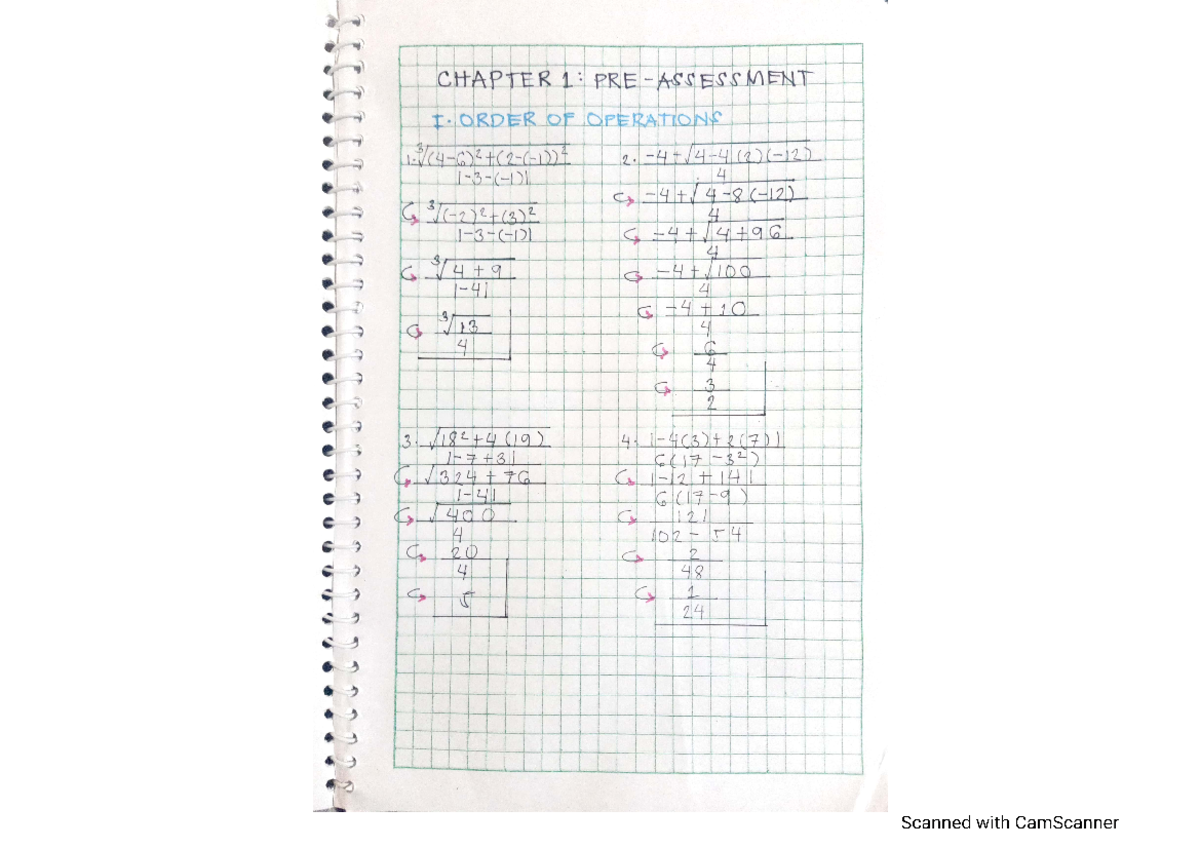 CHAPTER 1: PRE-ASSESSMENT
I. ORDER OF OPERATIONS
1. ∛(4-6)²+(2-(-1))²
|-3-(-1)|
∛(-2)²+(3)²
|-3-(-1)|
∛4+9
|-4|
∛13
4
2. -4+√4-4(2)(-12)
4
-4+√4-8(-12)
4
-4+√4+96
4
-4+√100
4
-4+10
4
6
4
3
2
3. √18²+4(19)
|-7+3|
√324+76
|-4|
√400
4
20
4
5
4. |-4(3)+2(7)|
6(17-3²)
|-12+14|
6(17-9)
|2|
102-54
2
48
1
24
Scanned with CamScanner